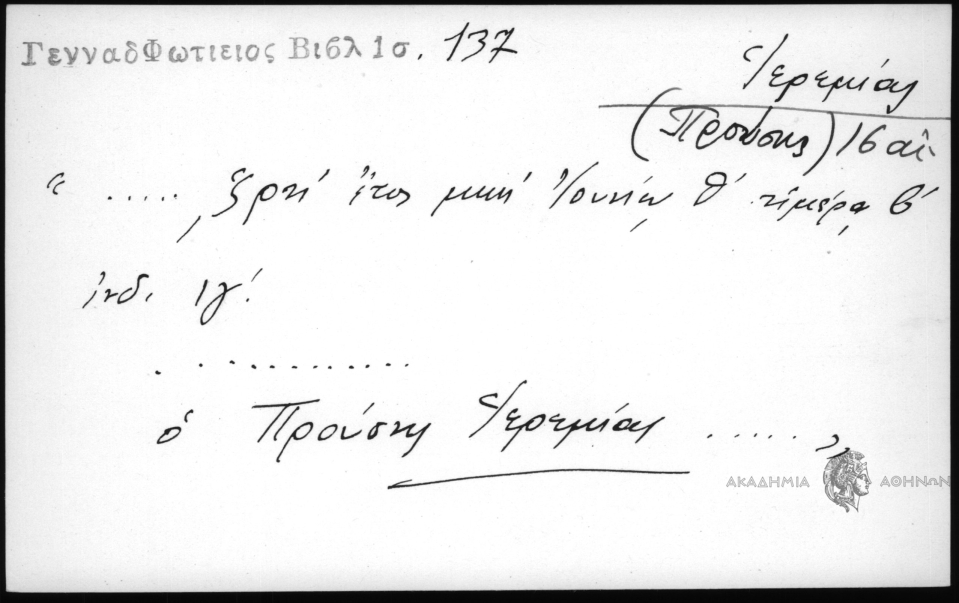 ΓενναδΦωτιειος Βιβλ 1σ. 137
Ἱερεμίας
(Προύσης) 16 αἰ.
“ ..... ͵ζρκή ἔτος μηνὶ Ἰουνίῳ θ' ἡμέρᾳ β'
ἰνδ. ιγ'.
. . . . . . . . . . . . .
ὁ Προύσης Ἱερεμίας ..... „
ΑΚΑΔΗΜΙΑ ΑΘΗΝΩΝ